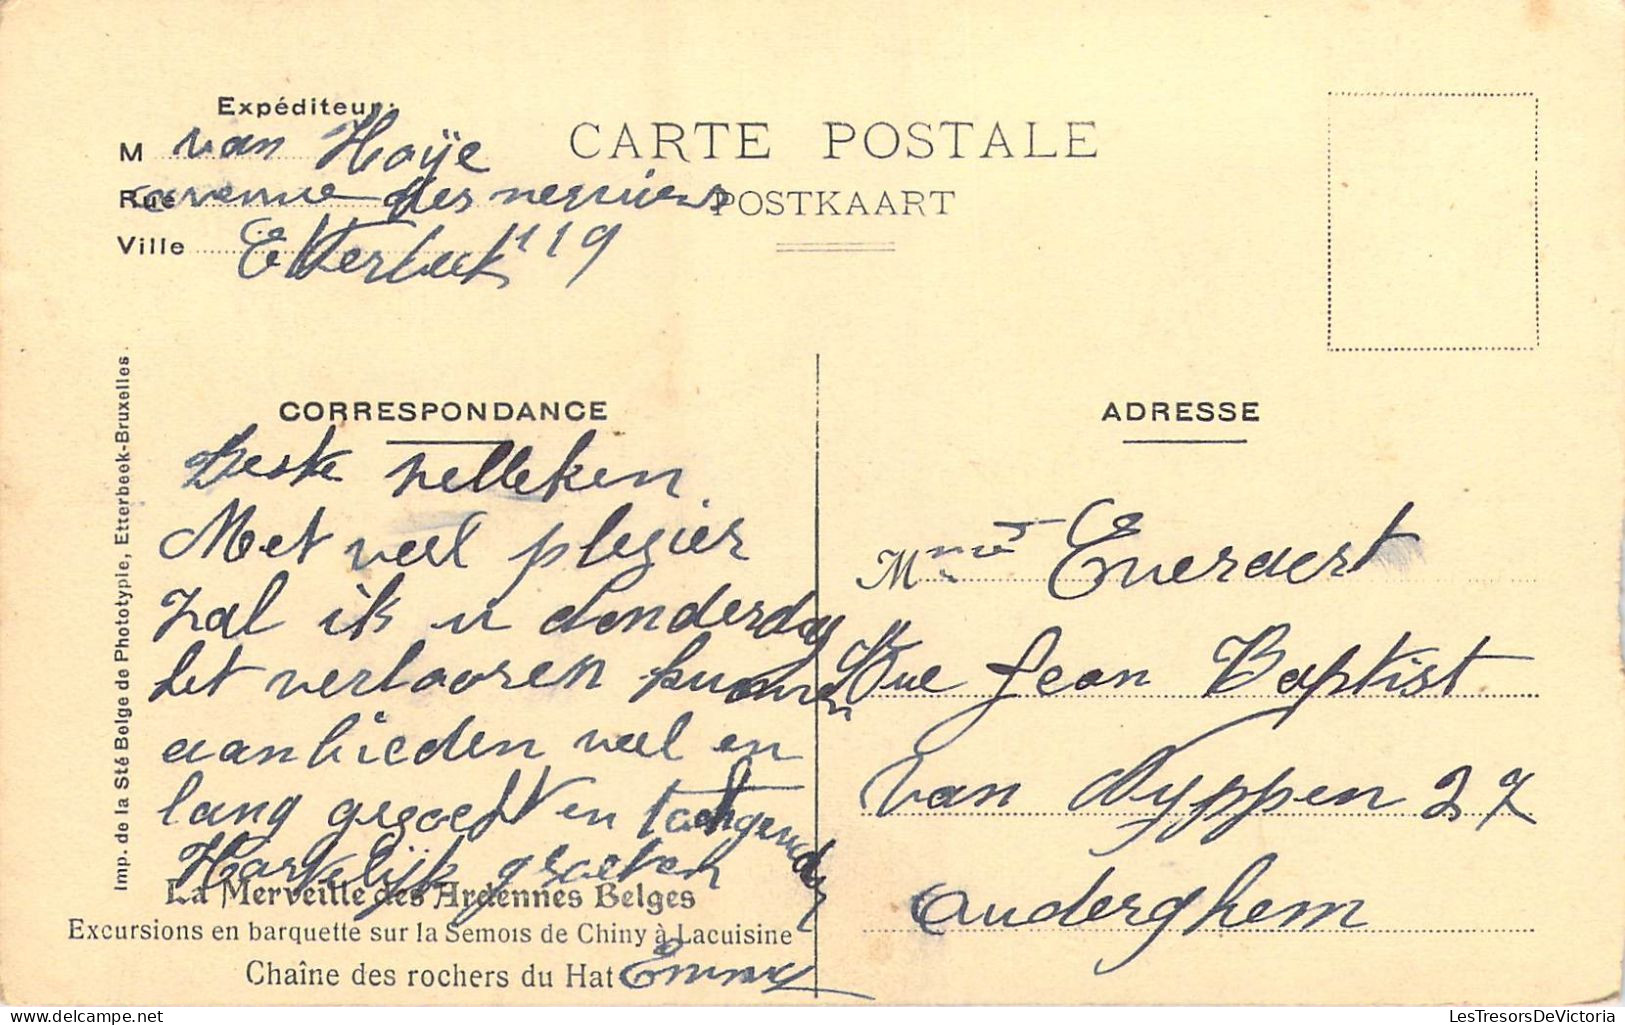 Expéditeur:
M van Hoÿe
Rue avenue des
Ville Etterbeek 119
CARTE POSTALE
POSTKAART
CORRESPONDANCE
Beste nelleken
Met veel plesier
zal ik u donderdag
het verlooren kunnen
aanbieden veel en
lang gesocht en
Hartelijk groeten
Emmy
La Merveille des Ardennes Belges
Excursions en barquette sur la Semois de Chiny à Lacuisine
Chaîne des rochers du Hat
Imp. de la Sté Belge de Phototypie, Etterbeek-Bruxelles
ADRESSE
Mme Everaert
Rue Jean Baptist
van 27
Auderghem
LesTresorsDeVictoria
delcampe.net